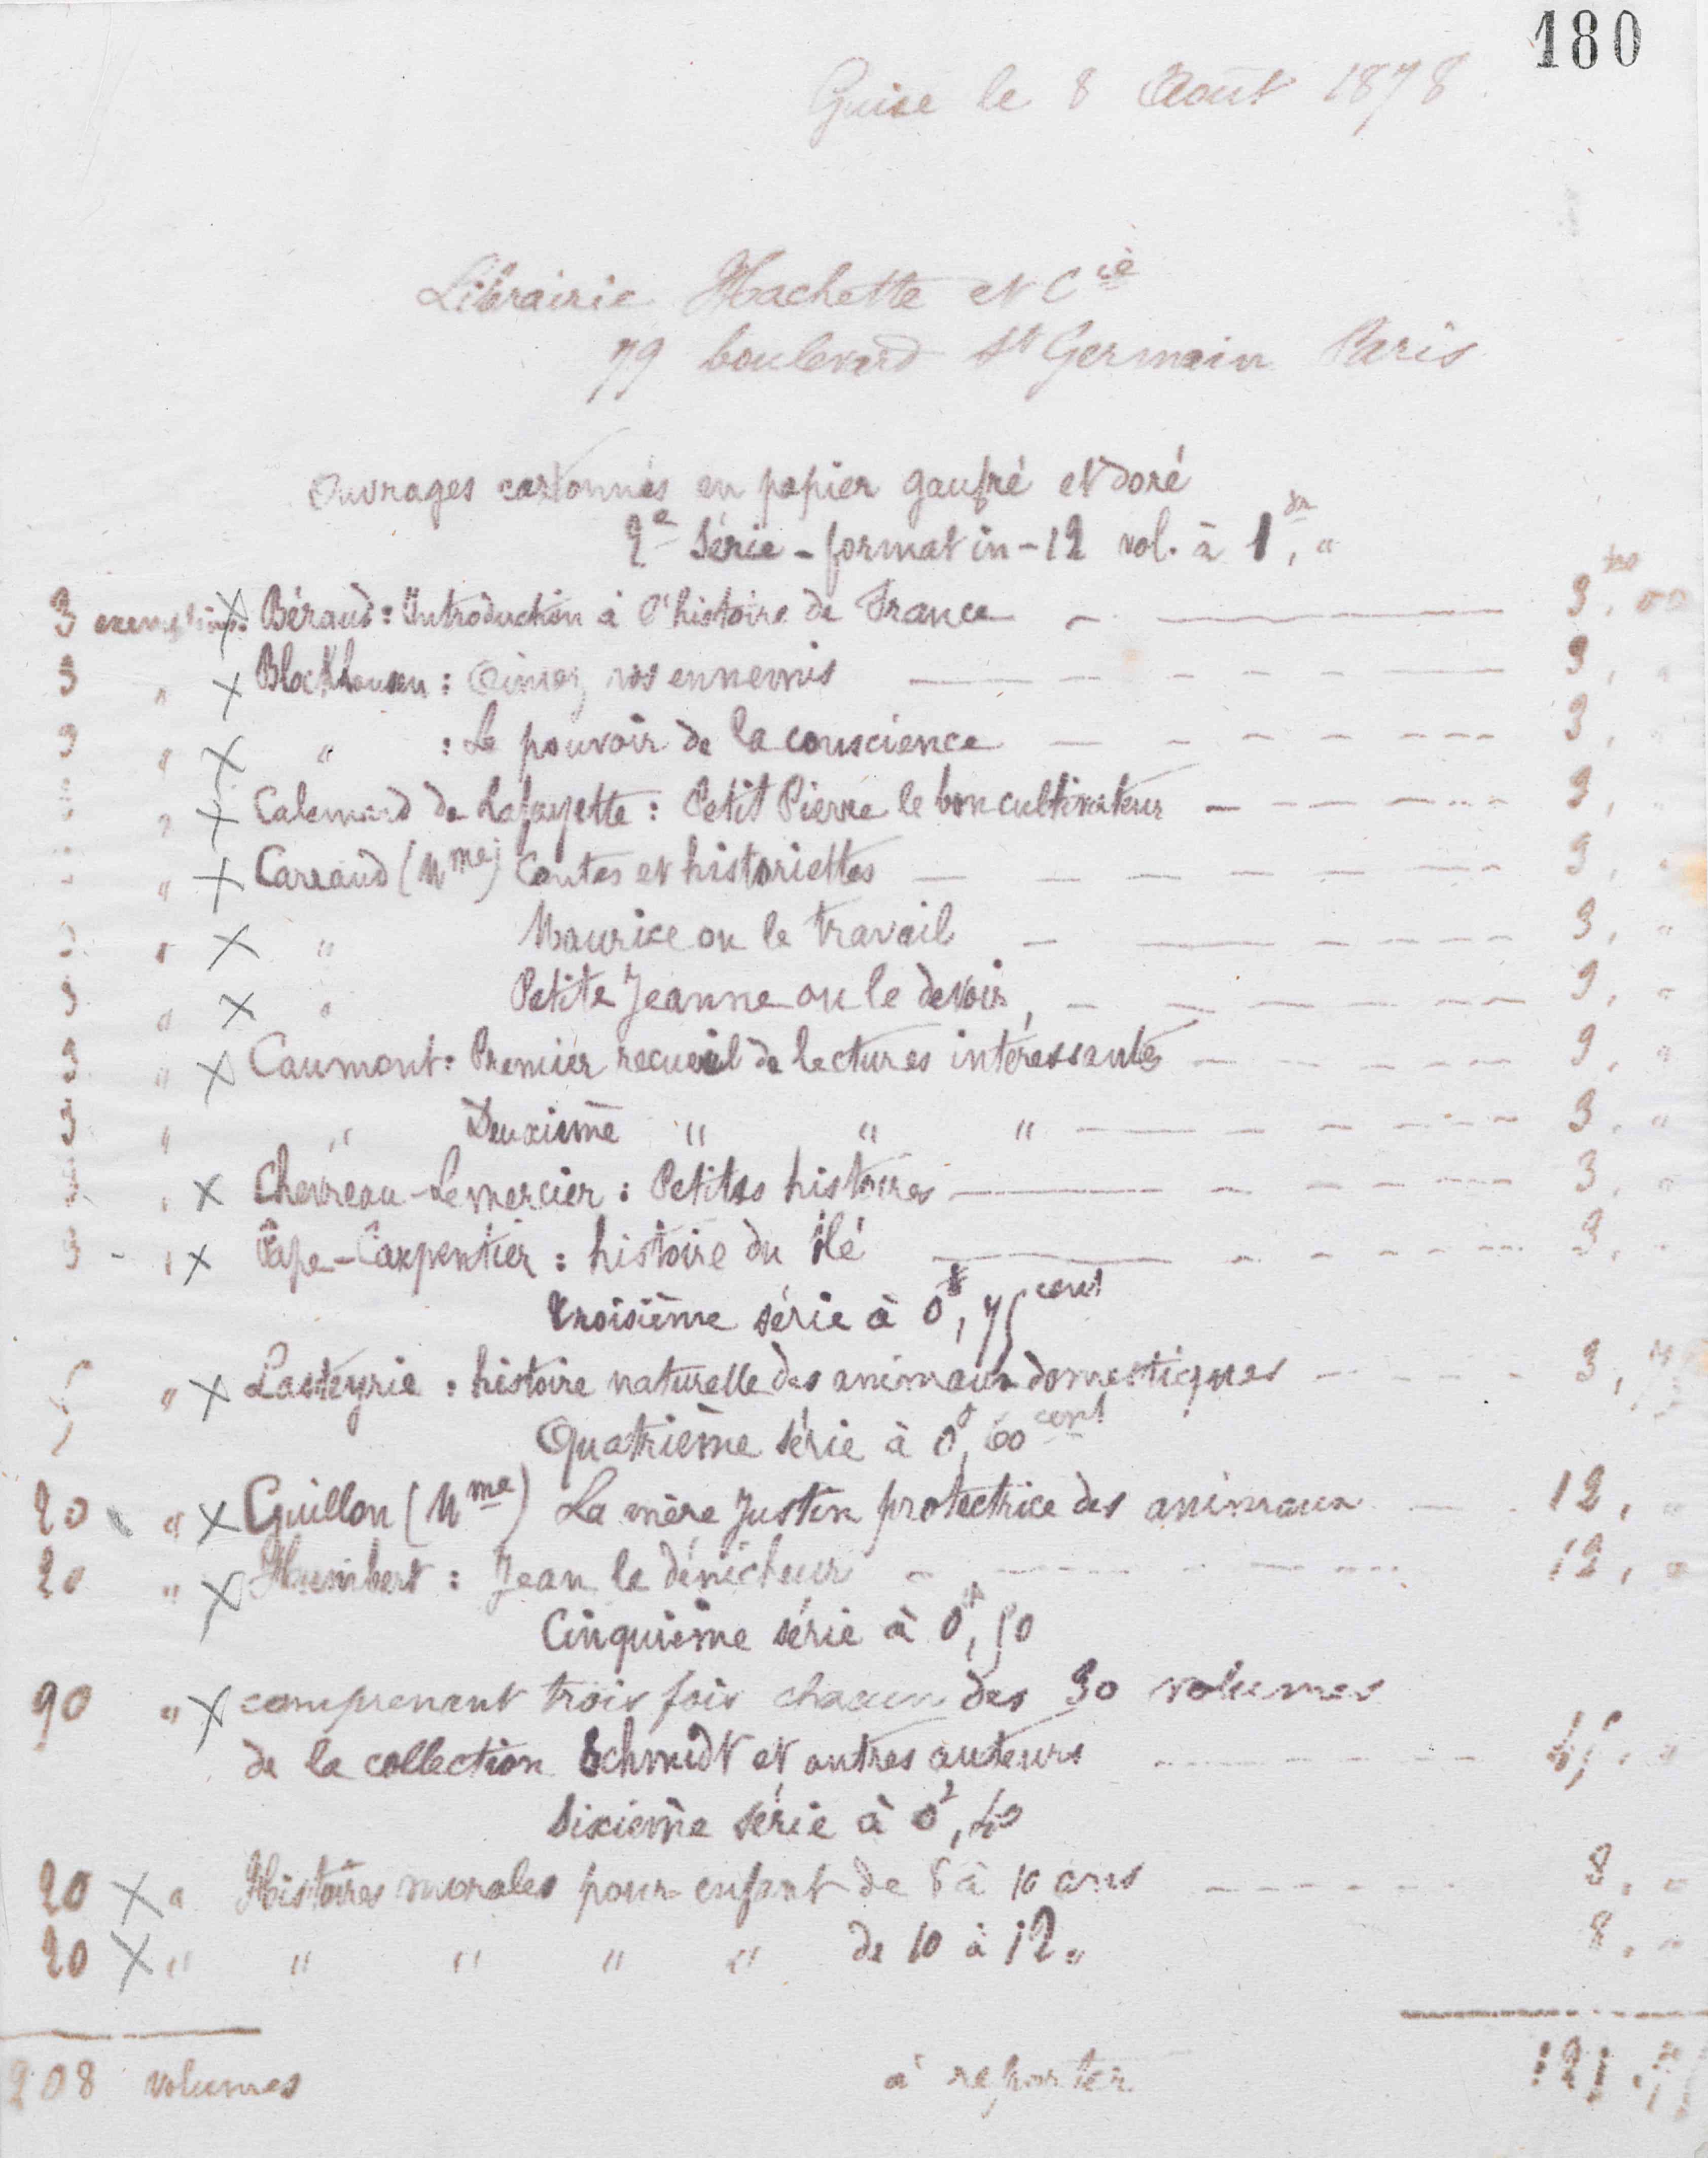 180
Guise le 8 Août 1878
Librairie Hachette et Cie
79 boulevard St Germain Paris
Ouvrages cartonnés en papier gaufré et doré
2e Série - format in-12 vol. à 1fr, "
3 exemplaires X Béraud : Introduction à l'histoire de France - — 3, 00
3 " X Blockhausen : Aimez vos ennemis — - - - - 3, "
3 " X " : Le pouvoir de la conscience — - - - - 3, "
" X Calemard de Lafayette : Petit Pierre le bon cultivateur - - - - 3, "
" X Carraud (Mme) Contes et historiettes — - - - - 3, "
3 " X " Maurice ou le travail - — - - - 3, "
3 " X " Petite Jeanne ou le devoir, - - - - - 3, "
3 " X Caumont : Premier recueil de lectures intéressantes - - - - 3, "
3 " " Deuxième " " " - - - - 3, "
3 " X Chevreau-Lemercier : Petites histoires — - - - - 3, "
3 - " X Pape-Carpentier : histoire du blé — - - - - 3, "
Troisième série à 0f, 75 cent
5 " X Lasteyrie : histoire naturelle des animaux domestiques - - - - 3, 75
Quatrième série à 0f, 60 cent
20 " X Guillon (Mme) La mère Justin protectrice des animaux - - 12, "
20 " X Humbert : Jean le dénicheur - - - - 12, "
Cinquième série à 0f, 50
90 " X comprenant trois fois chacun des 30 volumes
de la collection Schmidt et autres auteurs - - - - 45, "
Sixième série à 0f, 40
20 X " Histoires morales pour enfant de 8 à 10 ans - - - - 8, "
20 X " " " " " de 10 à 12 " 8, "
208 volumes à reporter 121, 75